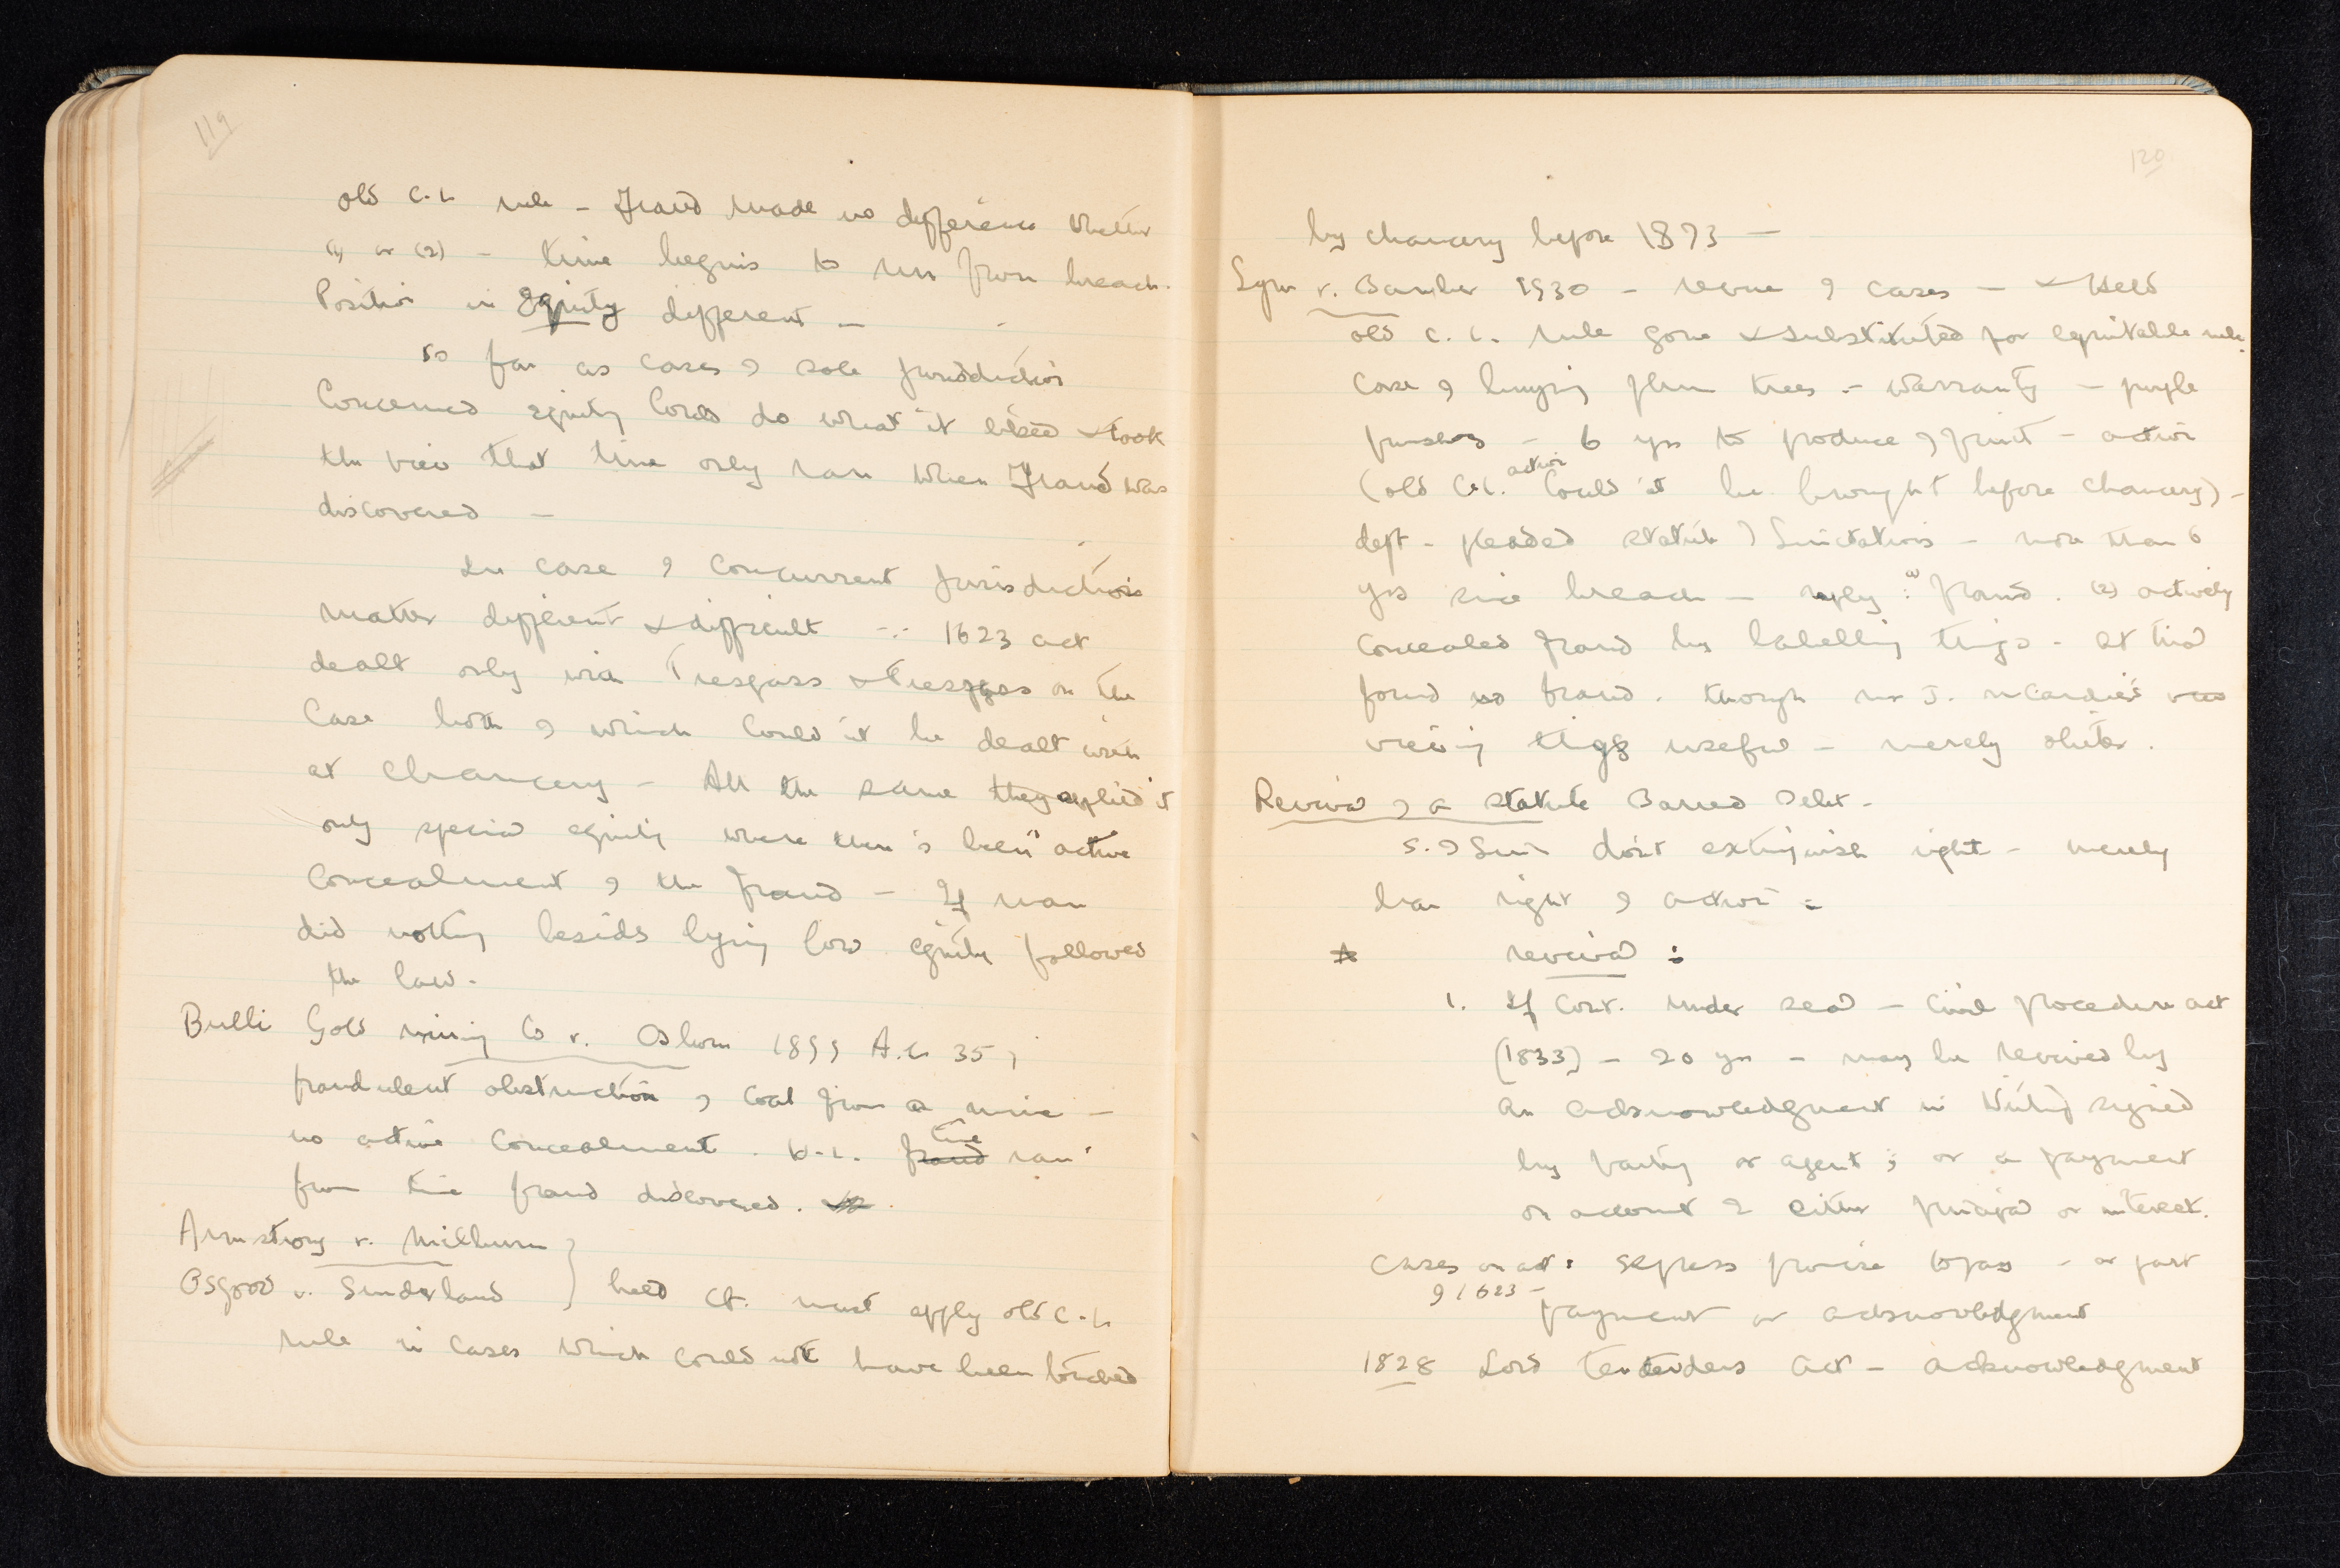 119
old C.L. rule - Fraud made no difference whether
(1) or (2) - time begins to run from breach.
Position in Equity different -
so far as cases of sole jurisdiction
Concerned equity could do what it liked & took
the view that time only ran when Fraud was
discovered -
In case of concurrent jurisdiction
matter different & difficult -∵ 1623 act
dealt only with Trespass & Trespass on the
Case both of which could n't be dealt with
at Chancery - All the same they applied it
only special equity where there's been "active
concealment of the fraud - If man
did nothing besides lying low equity followed
the law.
Bulli Gold mining Co v. Osborn 1899 A.C. 351
fraudulent abstraction of coal from a mine -
no active concealment. H.L. time ran
from time fraud discovered.
Armstrong v. Milburn
Osgood v. Sunderland } held Ct. must apply old C.L.
rule in cases which could not have been touched
120
by chancery before 1873 -
Lynn v. Bamber 1930 - review of cases - & Held
old C.L. rule gone & substituted for equitable rule.
Case of buying plum trees - warranty - purple
pershores - 6 yrs to produce of fruit - action
(old C.L. action could n't be brought before chancery) -
deft - pleaded statute of Limitations - more than 6
yrs since breach - reply : (1) fraud. (2) actively
concealed fraud by labelling things - at trial
found no fraud. though Mr J. McCardie's
viewing things useful - merely obiter.
Revival of a statute Barred Debt -
S. of Lim don't extinguish right - merely
bar right of action =
revival :
1. If Cont. under seal - Civil Procedure act
(1833) - 20 yrs - may be revived by
an acknowledgment in writing signed
by party or agent ; or a payment
on account of either principal or interest.
Cases on act : express promise to pay - or part
of 1623 -
payment or acknowledgment
1828 Lord Tenterdens Act - acknowledgment